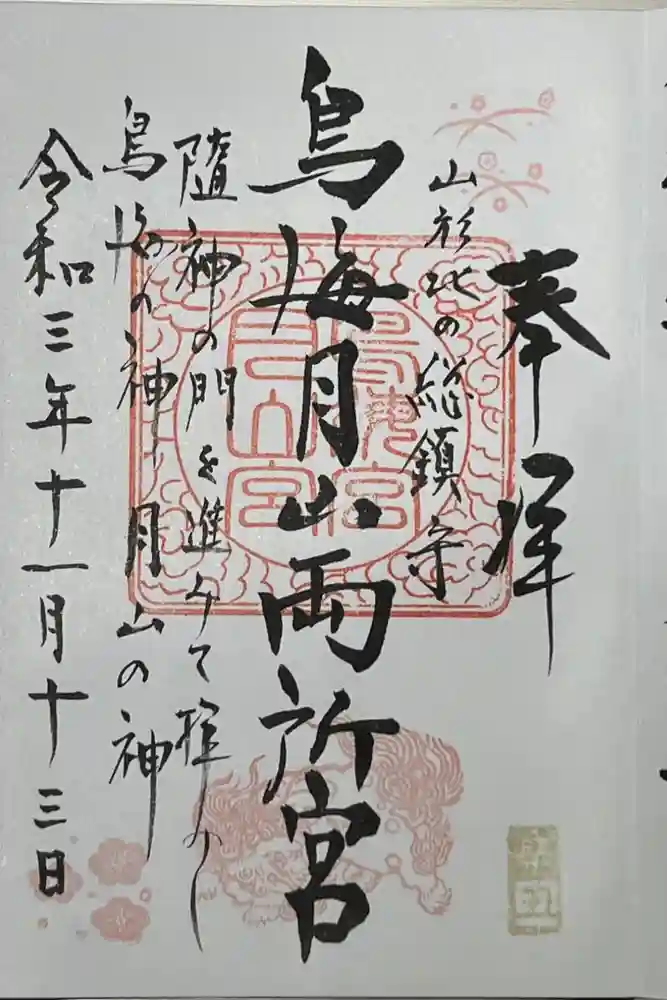 奉拝
山形北の総鎮守
鳥海月山両所宮
隨神の門を進みて拝
鳥海の神月山の神
令和三年十一月十三日
鳥海宮
月山宮